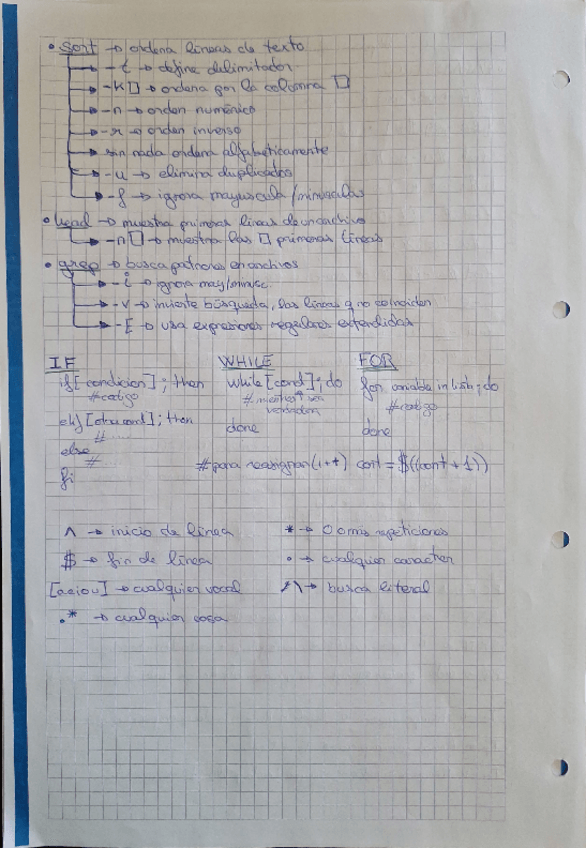 • sort → ordena lineas de texto
→ -t → define delimitador
→ -k[] → ordena por la columna []
→ -n → orden numérico
→ -r → orden inverso
→ sin nada ordena alfabeticamente
→ -u → elimina duplicados
→ -f → ignora mayuscula/minusculas
• head → muestra primeras lineas de un archivo
→ -n[] → muestra las [] primeras lineas
• grep → busca patrones en archivos
→ -i → ignora may/minusc.
→ -v → invierte búsqueda, las lineas q no coinciden
→ -E → usa expresiones regulares extendidas
IF WHILE FOR
if [condicion]; then while [cond]; do for variable in list; do
#codigo #mientras sea #codigo
verdadera
elif [otra cond]; then done done
#...
else
#
fi #para reasignar (i++) cont = $((cont + 1))
^ → inicio de linea * → 0 o más repeticiones
$ → fin de linea . → cualquier caracter
[aeiou] → cualquier vocal → busca literal
.* → cualquier cosa